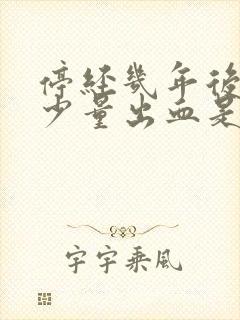 停经幾年後
少量出血是
宇宇乘風